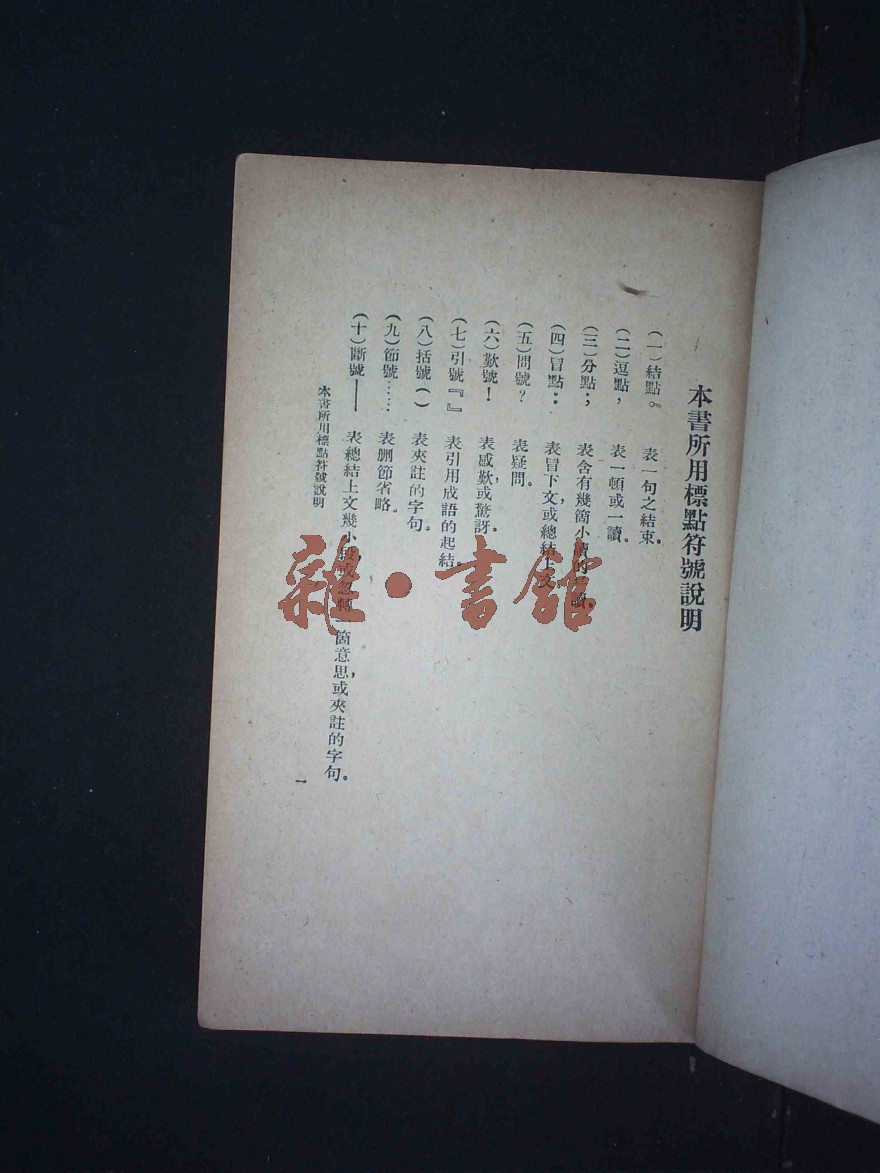 本書所用標點符號說明
(一)結點。 表一句之結束。
(二)逗點， 表一頓或一讀。
(三)分點； 表含有幾箇小讀的 讀。
(四)冒點： 表冒下文，或總結上文。
(五)問號？ 表疑問。
(六)歎號！ 表感歎或驚訝。
(七)引號『』 表引用成語的起結。
(八)括號( ) 表夾註的字句。
(九)節號…… 表刪節省略。
(十)斷號—— 表總結上文幾小段，或忽轉一箇意思，或夾註的字句。
本書所用標點符號說明
一
雜·書館